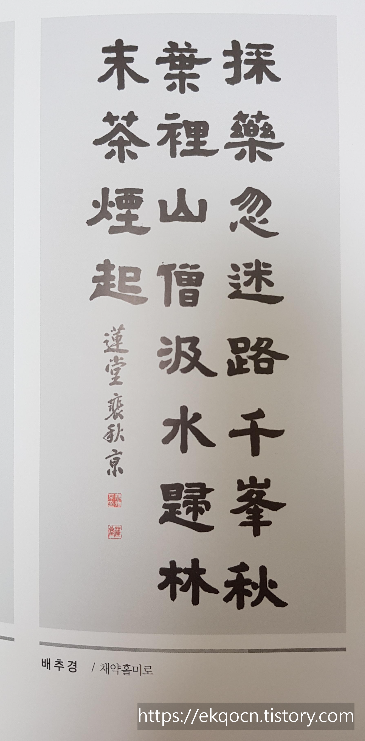 採藥忽迷路千峯秋
葉裡山僧汲水歸林
末茶煙起
蓮堂裵秋京
배추경 / 채약홀미로
https://ekqocn.tistory.com